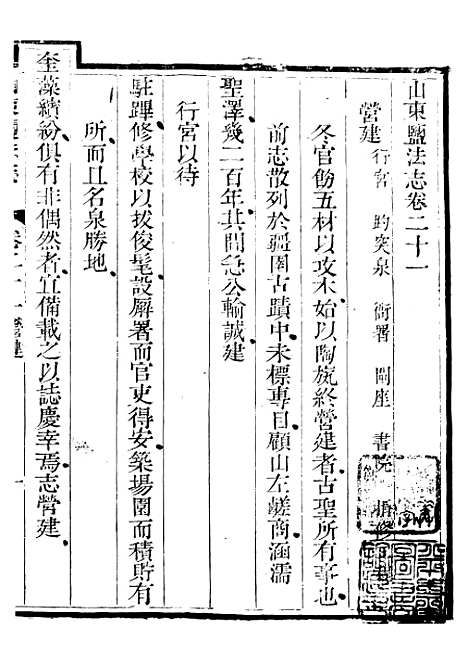 山東鹽法志卷二十一
營建 行宮 趵突泉 衙署 閘座 書院 捐修
冬官飭五材以攻木始以陶旊終營建者古聖所有事也
前志散列於疆圉古蹟中未標專目顧山左鹺商涵濡
聖澤幾二百年其間急公輸誠建
行宮以待
駐蹕修學校以拔俊髦設廨署而官吏得安築場圃而積貯有
所而且名泉勝地
奎藻繽紛俱有非偶然者宜備載之以誌慶幸焉志營建
卷二十一 營建 一